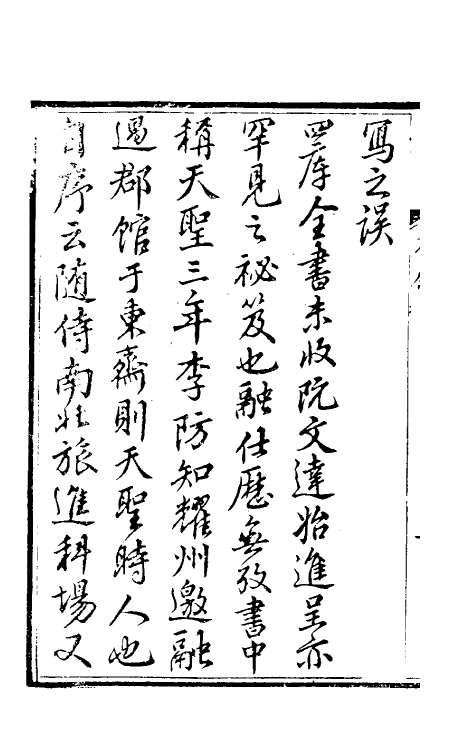 寫之誤
四庫全書未收阮文達始進呈亦
罕見之祕笈也融仕歷無攷書中
稱天聖三年李防知耀州邀融
過郡館于東齋則天聖時人也
自序云随侍南北旅進科場又